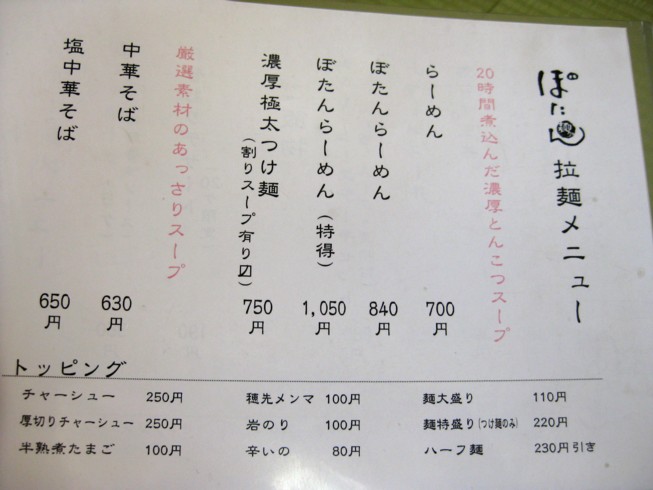 ぼたん 拉麺メニュー
20時間煮込んだ濃厚とんこつスープ
らーめん 700円
ぼたんらーめん 840円
ぼたんらーめん（特得） 1,050円
濃厚極太つけ麺 750円
（割りスープ有り〼）
厳選素材のあっさりスープ
中華そば 630円
塩中華そば 650円
トッピング
チャーシュー 250円
厚切りチャーシュー 250円
半熟煮たまご 100円
穂先メンマ 100円
岩のり 100円
辛いの 80円
麺大盛り 110円
麺特盛り(つけ麺のみ) 220円
ハーフ麺 230円引き